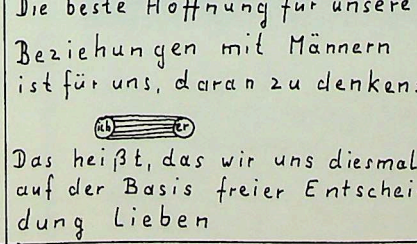 Die beste Hoffnung für unsere
Beziehungen mit Männern
ist für uns, daran zu denken.
ich er
Das heißt, das wir uns diesmal
auf der Basis freier Entschei
dung Lieben